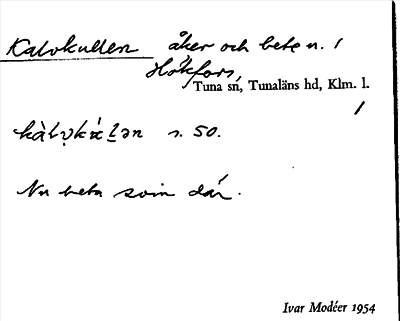 Kalvkullen åker och bete n. /
Hökfors,
Tuna sn, Tunaläns hd, Klm. l.
/
s. 50.
Nu beta som där.
Ivar Modéer 1954